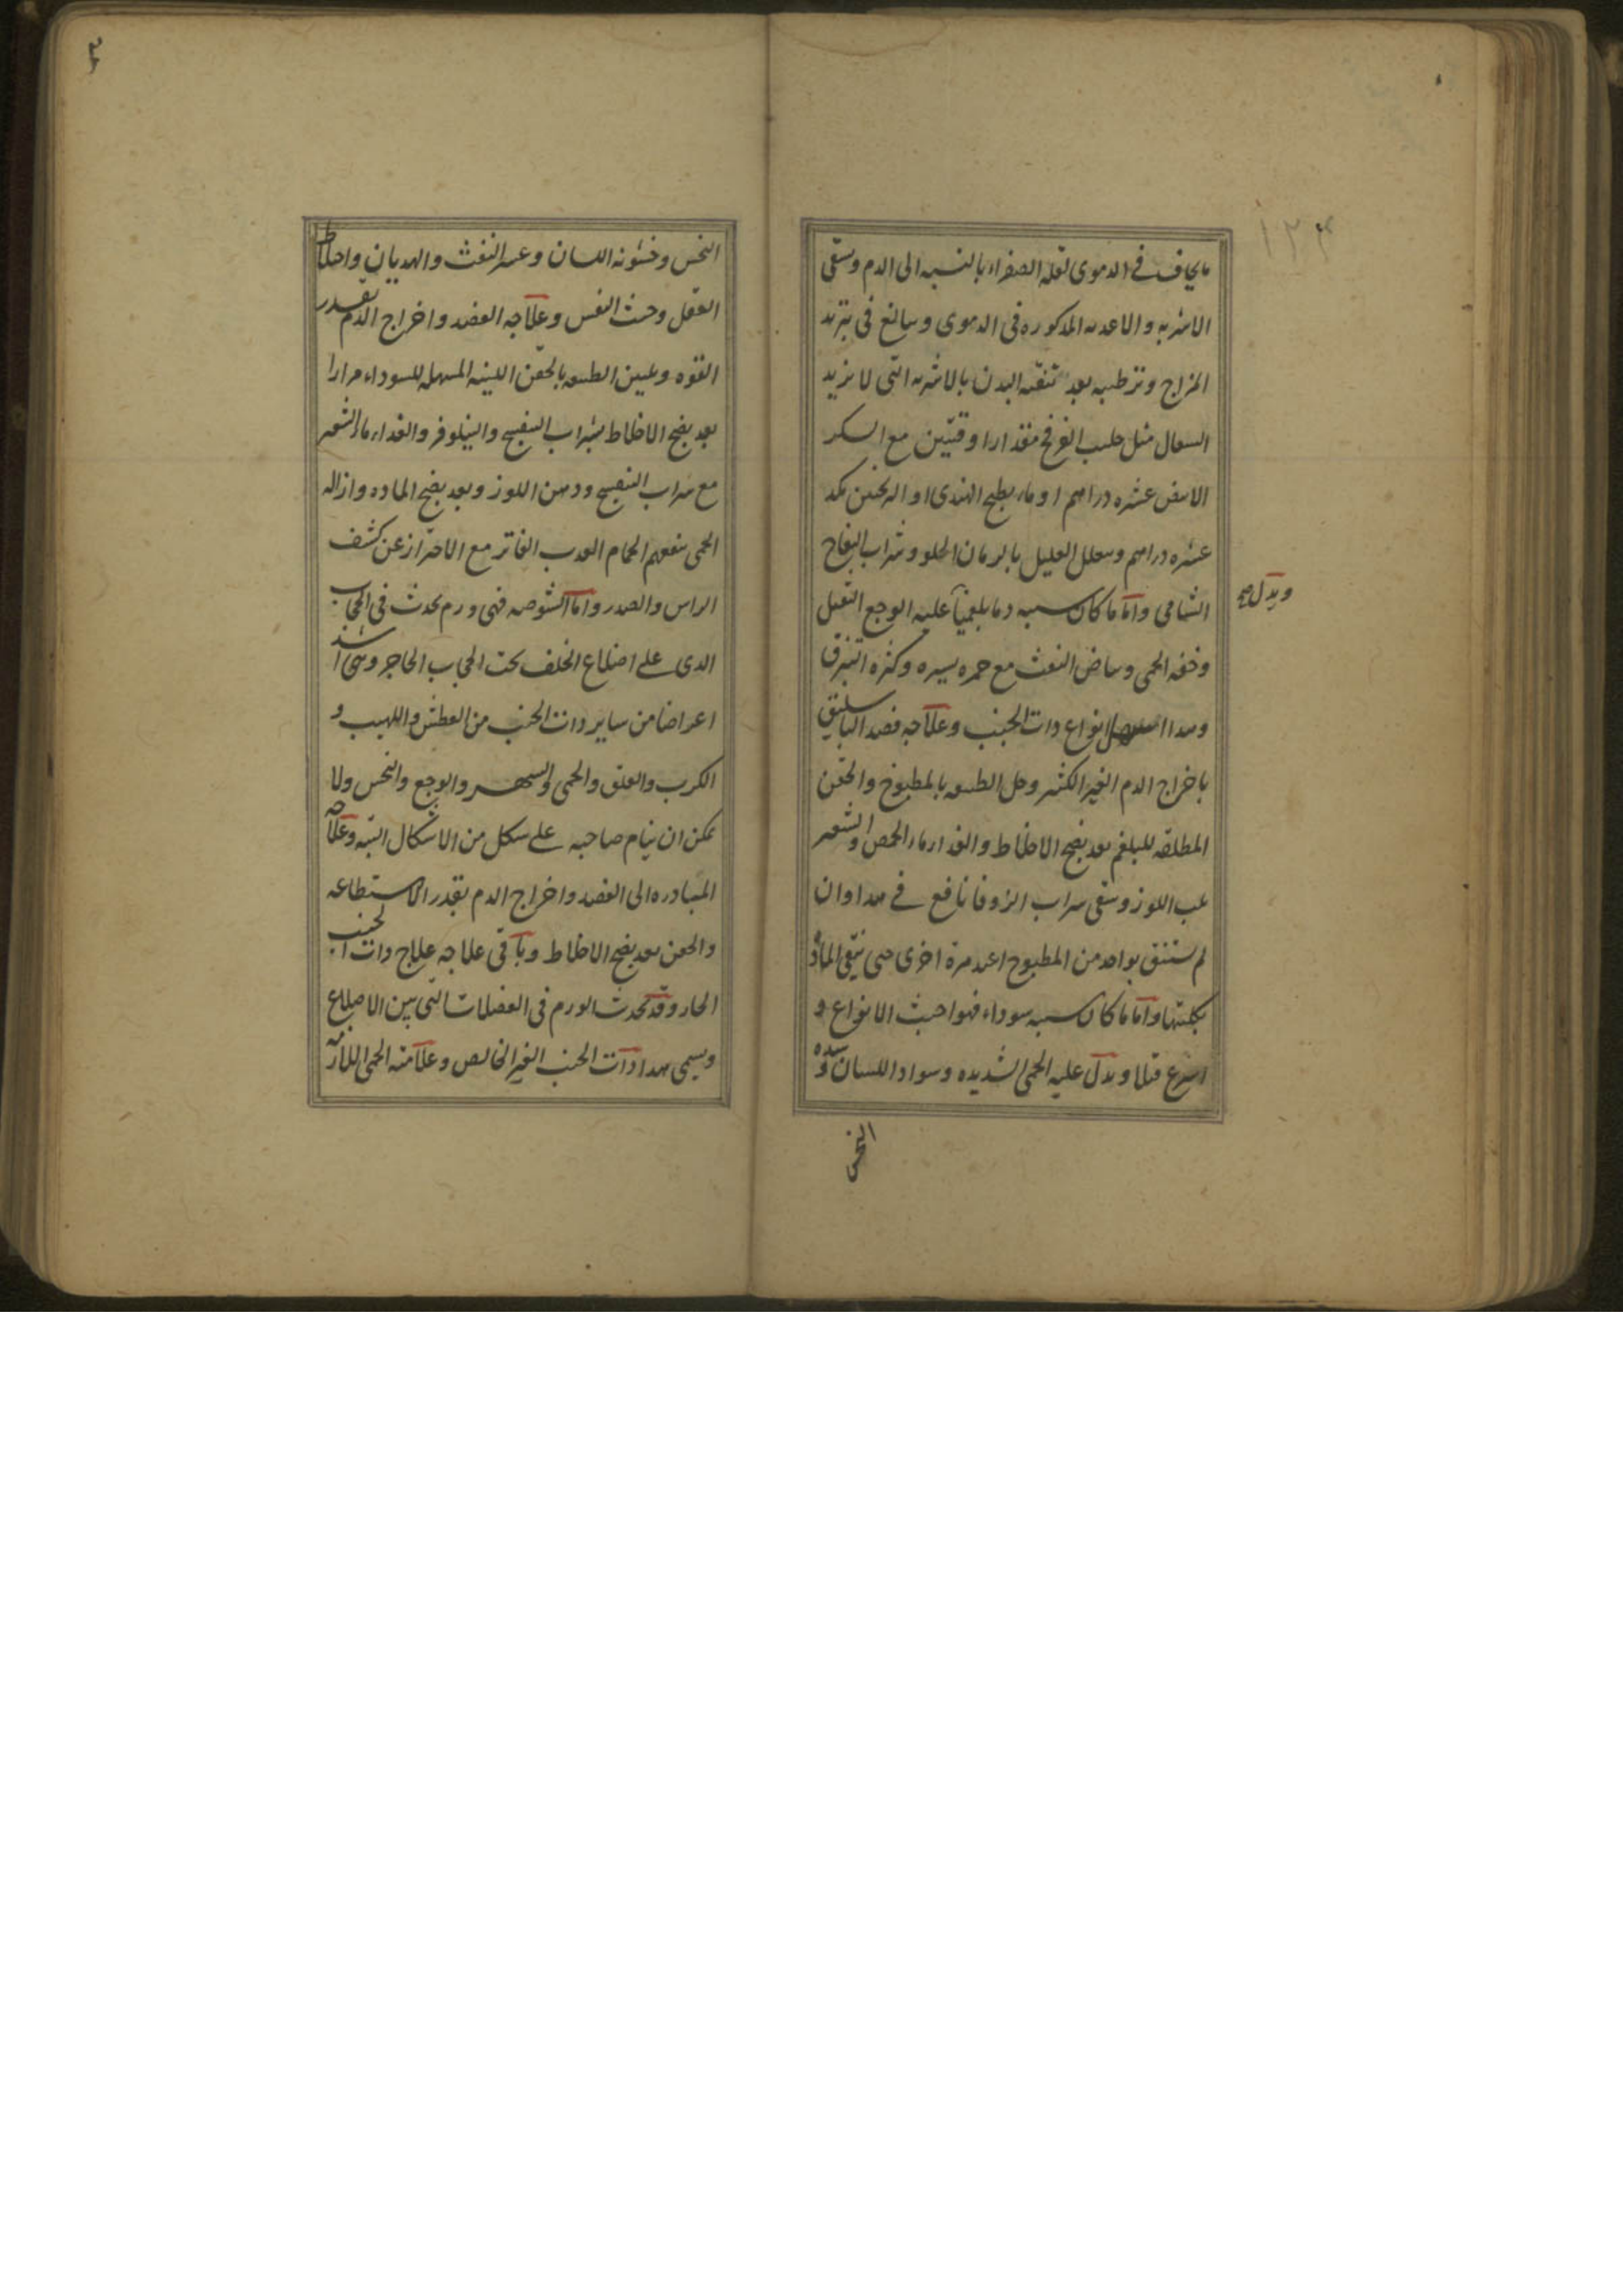 ما يخاف في الدموى لقله الصفراء بالنسبه الى الدم ويسقى
الاشربه والاغديه المدكوره فى الدموى ويبالغ فى تبريد
المزاج وترطيبه بعد تنقيه البدن بالاشربه التى لا تزيد
السعال مثل حليب القرفح مقدار اوقيتين مع السكر
الابيض عشره دراهم او ماء بطيخ الهندى او الترنجبين مكد
عشره دراهم وىعلل العليل بالرمان الحلو وشراب التفاح
الشامى واما ما كان سببه دما بلغميا عليه الوجع الثقيل
ويدل صح
وخفه الحمى وبياض النفث مع حمره يسيره وكثره التبزق
وهدا انواع دات الجنب وعلاجه فصد الباسليق
باخراج الدم الغير الكثير وحل الطبيعه بالمطبوخ والحقن
المطلقه للبلغم بعد نضج الاخلاط والغداء ماء الحمص والشعير
بلب اللوز وسقى شراب الزوفا نافع فى هدا وان
لم يستنق بواحد من المطبوخ اعيد مرة اخرى حتى تنقى الماده
بكليتها واما ما كان سببه سوداء فهو اخبث الانواع و
اسرع قتلا ويدل عليه الحمى الشديده وسواد اللسان وشده
النخس
النخس وخشونه اللسان وعسر النفث والهديان واختلاط
العقل وخبث النفس وعلاجه الفصد واخراج الدم بقدر
القوه وتليين الطبيعه بالحقن اللينه المسهله للسوداء مرارا
بعد نضج الاخلاط بشراب البنفسج والنيلوفر والغداء ماء الشعير
مع شراب البنفسج ودهن اللوز وبعد نضج الماده وازاله
الحمى ينفعهم الحمام العدب الفاتر مع الاحتراز عن كشف
الراس والصدر واما الشوصه فهى ورم يحدث فى الحجاب
الدى على اضلاع الخلف تحت الحجاب الحاجز وهى اشد
اعراضا من ساير دات الجنب من العطش واللهيب و
الكرب والقلق والحمى والسهر والوجع والنخس ولا
يمكن ان ينام صاحبه على شكل من الاشكال البته وعلاجه
المبادره الى الفصد واخراج الدم بقدر الاستطاعه
والحقن بعد نضج الاخلاط وباقى علاجه علاج دات الجنب
الحار وقد يحدث الورم فى العضلات التى بين الاضلاع
ويسمى هدا دات الجنب الغير الخالص وعلامته الحمى اللازمه